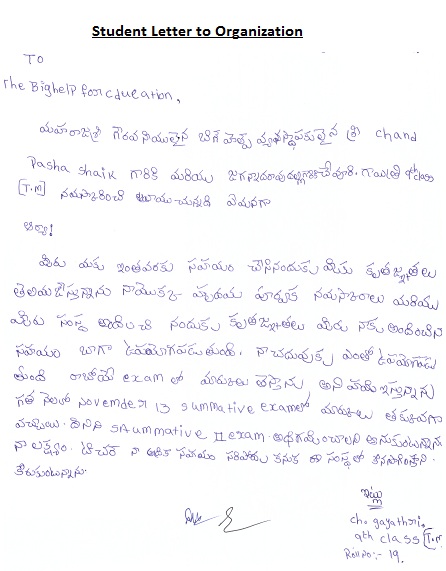 Student Letter to Organization
To
The Bighelp for Education,
మహారాజశ్రీ గౌరవనీయులైన బిగ్ హెల్ప్ వ్యవస్థాపకులైన శ్రీ chand
Pasha shaik గారికి మరియు గాయత్రి 9th class
[T.M] నమస్కరించి వ్రాయుచున్నది ఏమనగా
ఆర్యా!
మీరు మాకు ఇంతవరకు సహాయం చేసినందుకు మీకు కృతజ్ఞతలు
తెలియజేస్తున్నాను నాయొక్క హృదయ పూర్వక నమస్కారాలు మరియు
మీరు సంస్థ నందుకు కృతజ్ఞతలు మీరు నాకు అందించిన
సహాయం బాగా ఉపయోగపడుతుంది. నా చదువుకు ఎంతో ఉపయోగపడు
తుంది రాబోయే exam లో మార్కులు తెస్తాను అని
గత నెలలో November 13 summative examలో మార్కులు తక్కువగా
వచ్చాయి. దీనిని SAummative II exam. అనుకుంటున్నాను
నా లక్ష్యం. టీచర్ నా ఆర్థిక సహాయం కనుక ఈ సంస్థలో
కోరుకుంటున్నాను.
ఇట్లు
ch. gayathri,
9th class [T.M]
Roll no:- 19.